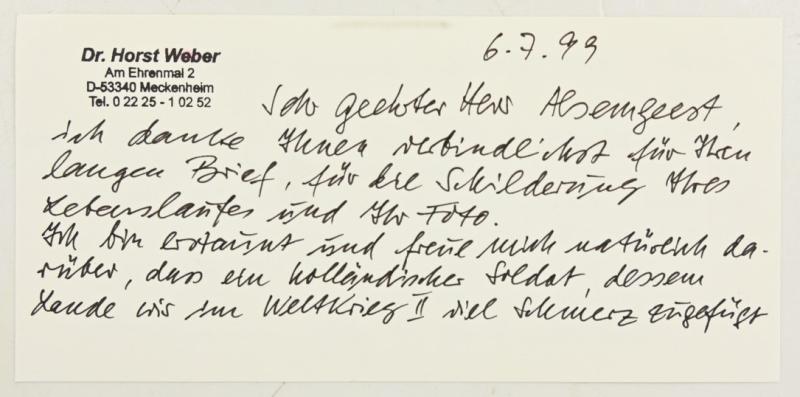 Dr. Horst Weber
Am Ehrenmal 2
D-53340 Meckenheim
Tel. 0 22 25 - 1 02 52
6.7.99
Sehr geehrter Herr Alsemgeest,
ich danke Ihnen verbindlichst für Ihren
langen Brief, für die Schilderung Ihres
Lebenslaufes und Ihr Foto.
Ich bin erstaunt und freue mich natürlich da-
rüber, dass ein holländischer Soldat, dessem
Lande wir im Weltkrieg II viel Schmerz zugefügt